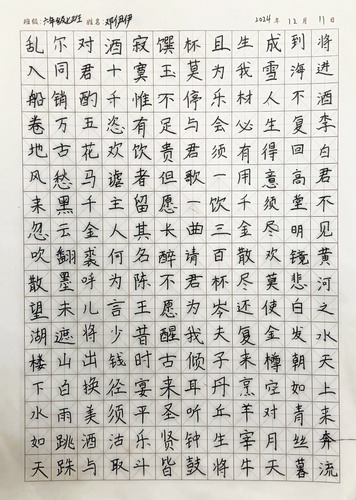 班级：六年级2班 姓名：邓伊伊 2024年12月11日
将进酒李白君不见黄河之水天上来奔流
到海不复回高堂明镜悲白发朝如青丝暮
成雪人生得意须尽欢莫使金樽空对月天
生我材必有用千金散尽还复来烹羊宰牛
且为乐会须一饮三百杯岑夫子丹丘生将
杯莫停与君歌一曲请君为我倾耳听钟鼓
馔玉不足贵但愿长醉不愿醒古来圣贤皆
寂寞惟有饮者留其名陈王昔时宴平乐斗
酒十千恣欢谑主人何为言少钱径须沽取
对君酌五花马千金裘呼儿将出换美酒与
尔同销万古愁黑云翻墨未遮山白雨跳珠
乱入船卷地风来忽吹散望湖楼下水如天